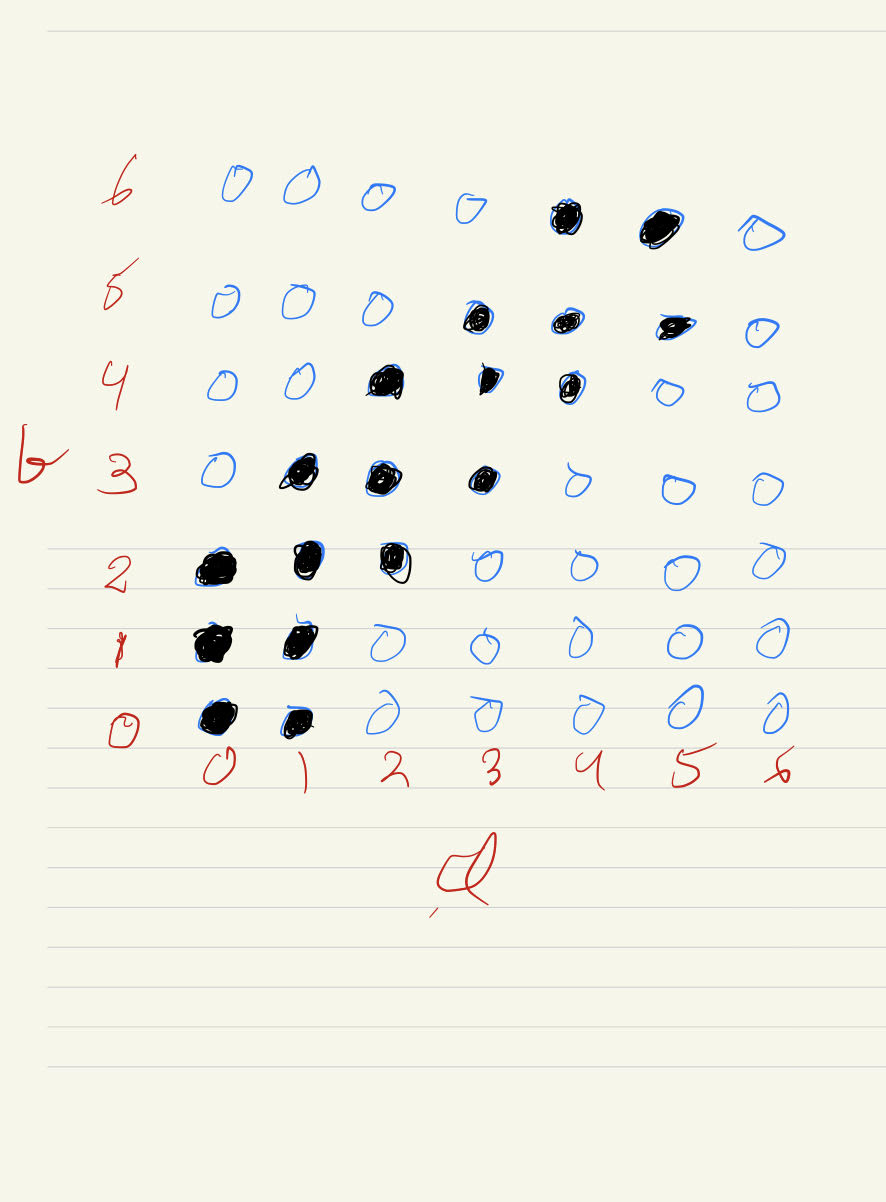 6
5
4
b 3
2
1
0
0 1 2 3 4 5 6
a